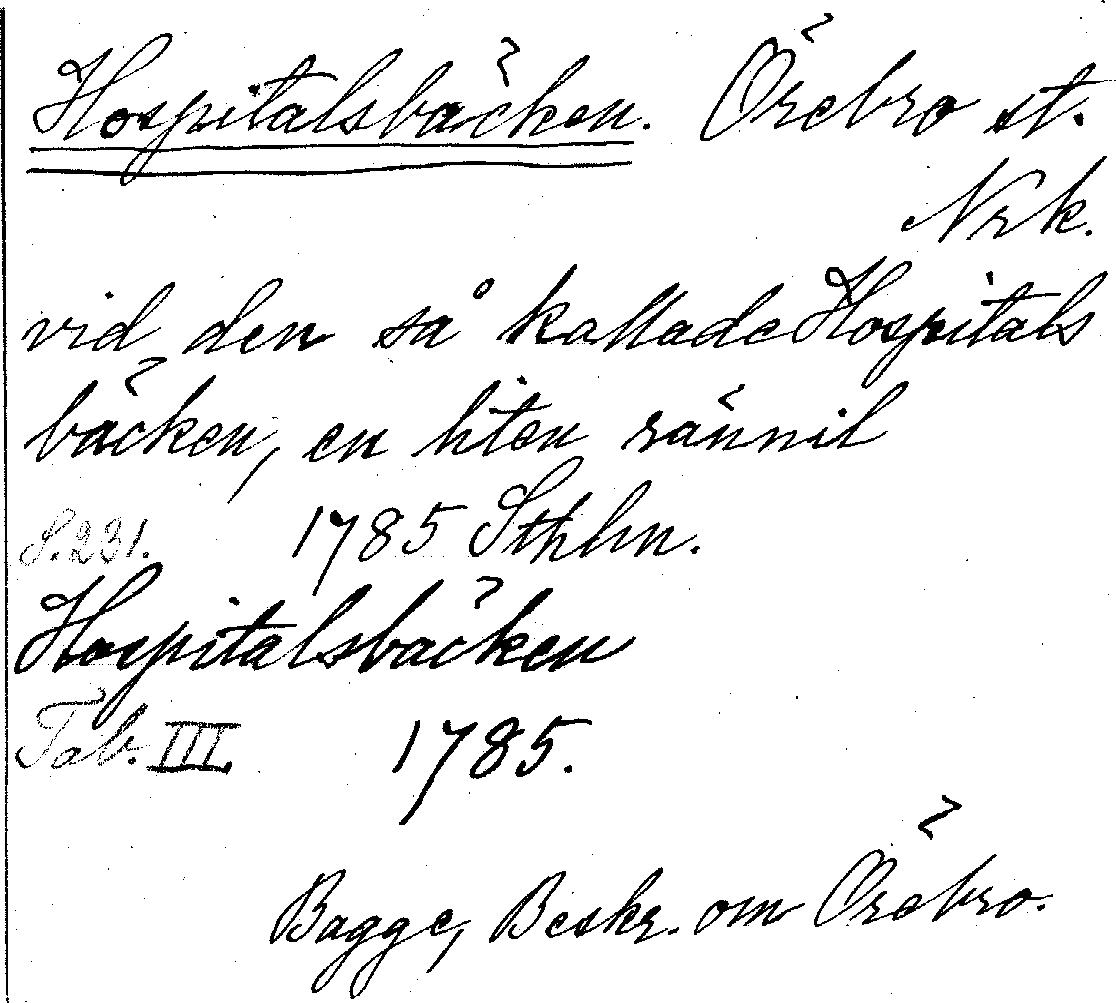 Hospitalsbäcken. Örebro st.
Nrk.
vid den så kallade Hospitals
bäcken, en liten rännil
S. 231. 1785 Sthlm.
Hospitalsbäcken
Tab. III 1785.
Bagge, Beskr. om Örebro.